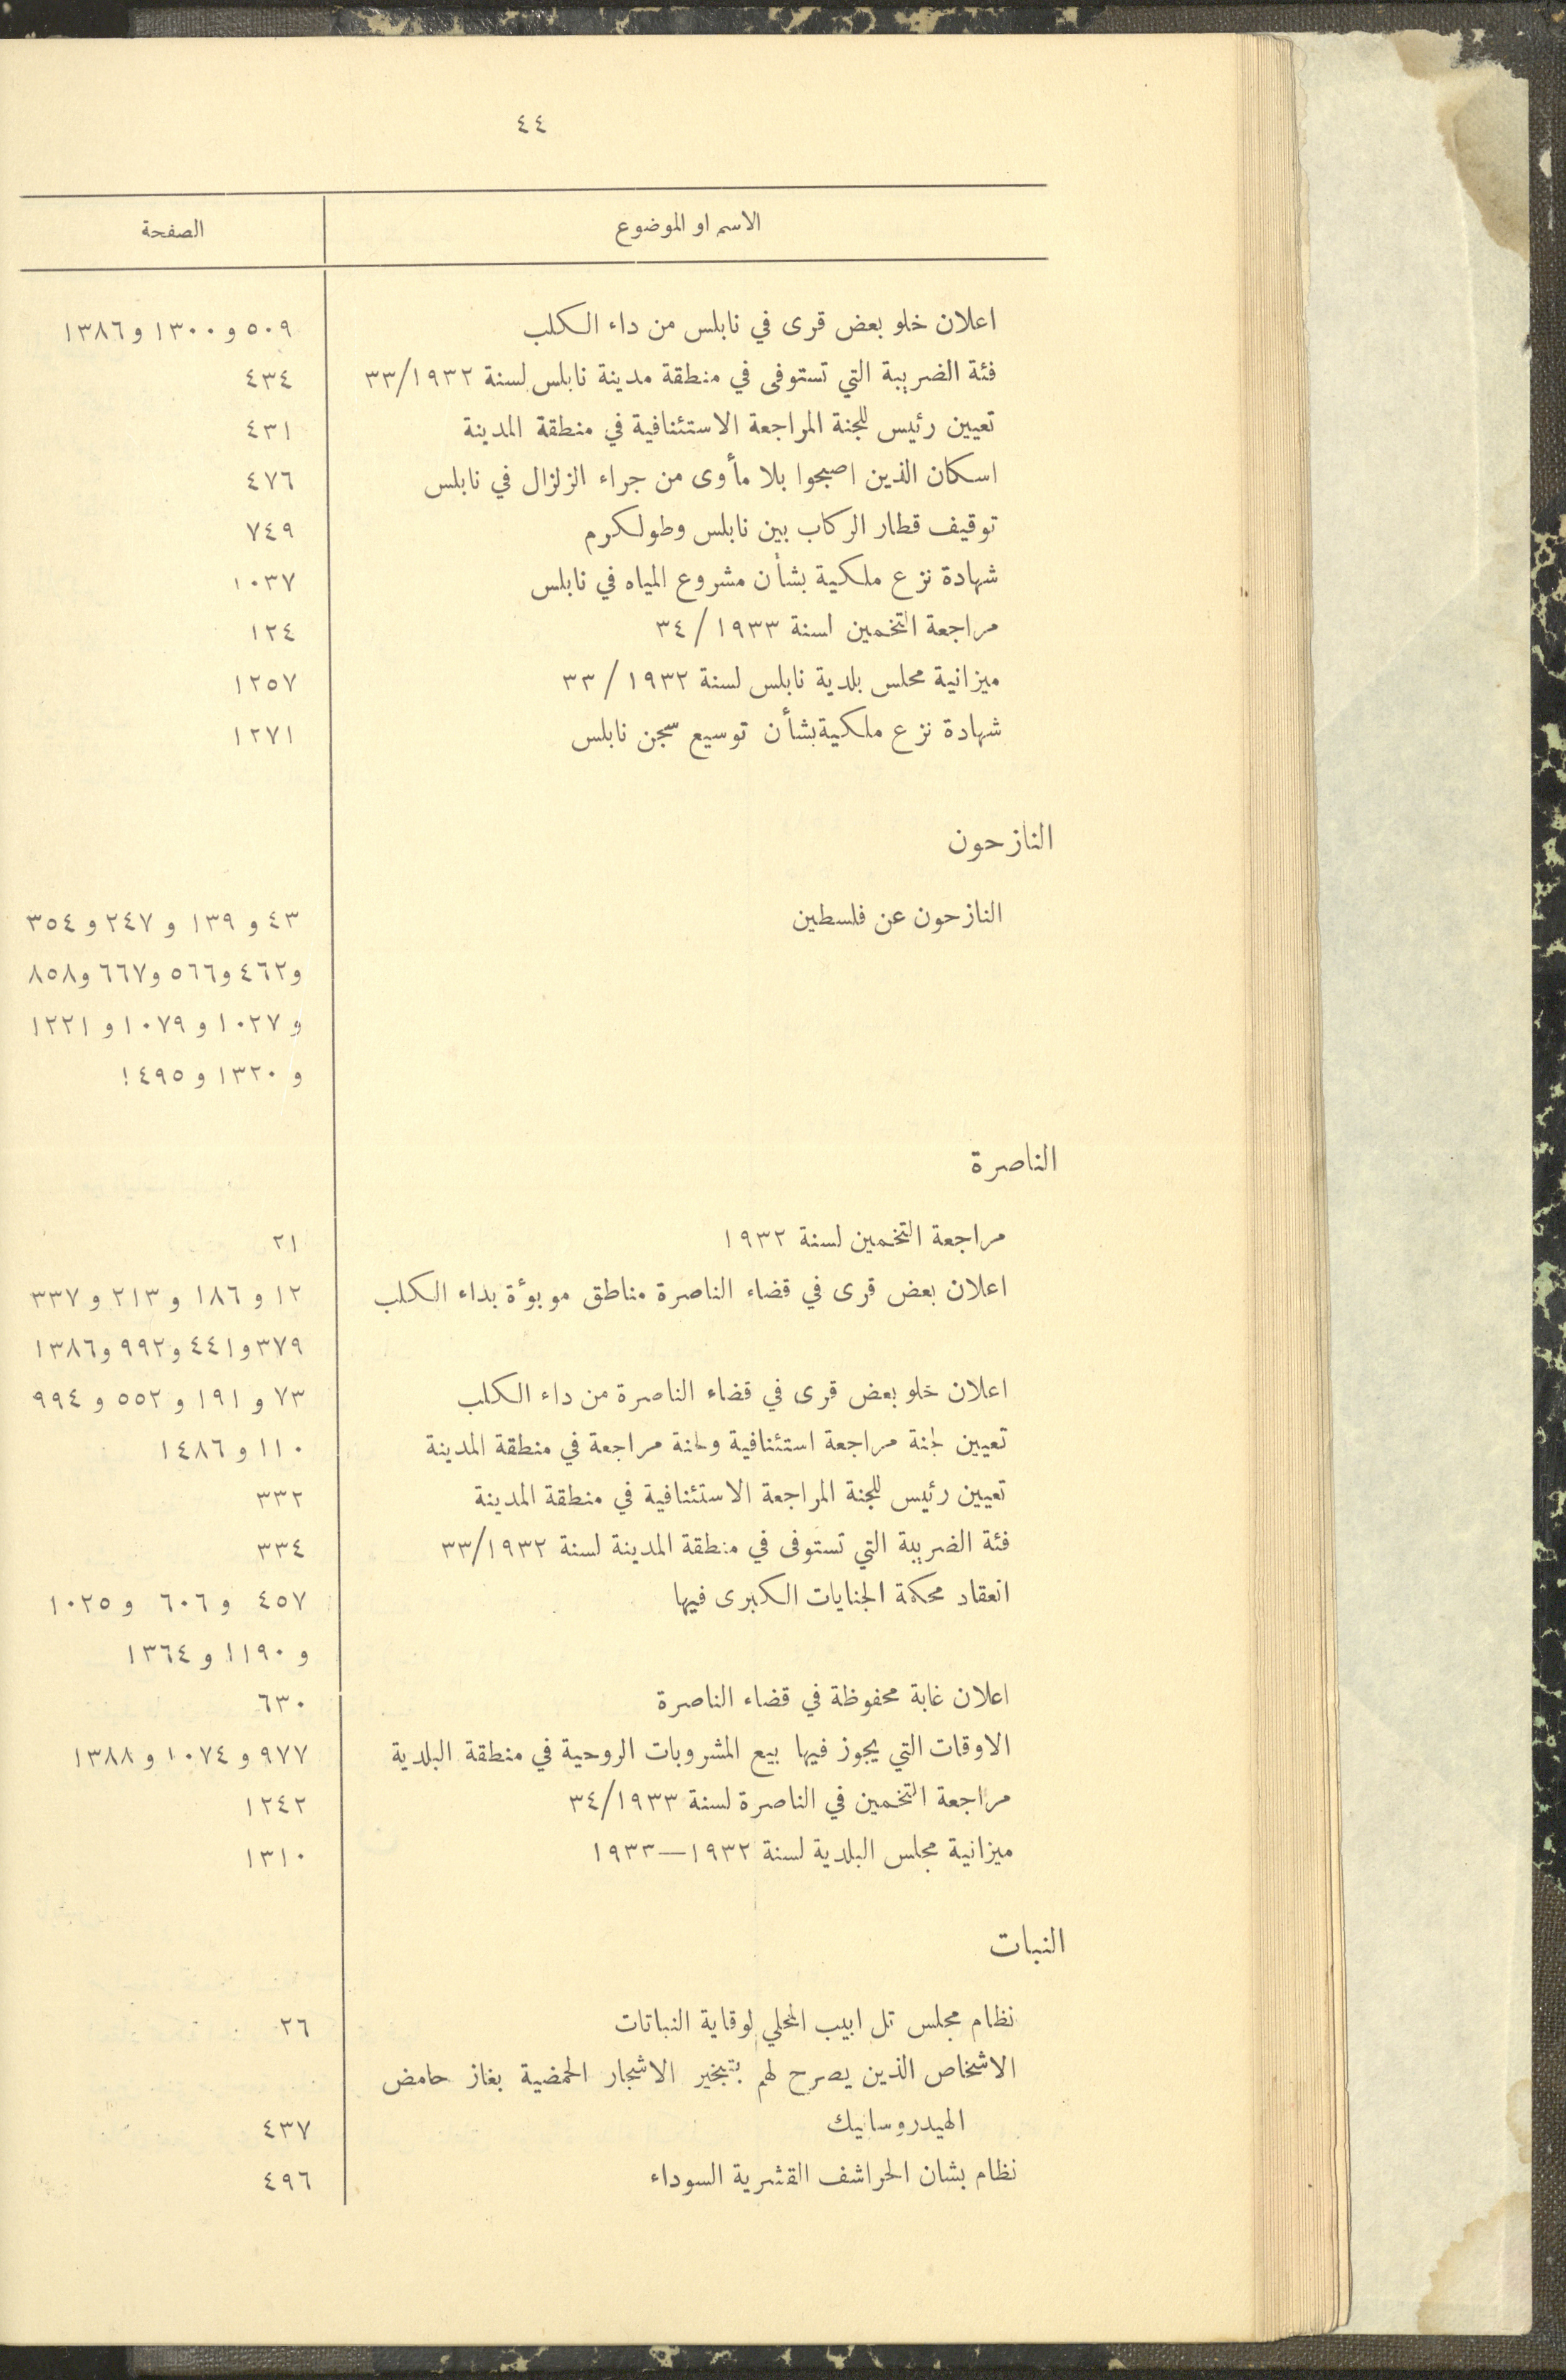 ٤٤
الاسم او الموضوع	الصفحة
اعلان خلو بعض قرى في نابلس من داء الكلب	٥٠٩ و ١٣٠٠ و ١٣٨٦
فئة الضريبة التي تستوفى في منطقة مدينة نابلس لسنة ٣٣/١٩٣٢	٤٣٤
تعيين رئيس للجنة المراجعة الاستئنافية في منطقة المدينة	٤٣١
اسكان الذين اصبحوا بلا مأوى من جراء الزلزال في نابلس	٤٧٦
توقيف قطار الركاب بين نابلس وطولكرم	٧٤٩
شهادة نزع ملكية بشأن مشروع المياه في نابلس	١٠٣٧
مراجعة التخمين لسنة ١٩٣٣ / ٣٤	١٢٤
ميزانية مجلس بلدية نابلس لسنة ١٩٣٢ / ٣٣	١٢٥٧
شهادة نزع ملكية بشأن توسيع سجن نابلس	١٢٧١
النازحون
النازحون عن فلسطين	٤٣ و ١٣٩ و ٢٤٧ و ٣٥٤
و٤٦٢ و٥٦٦ و٦٦٧ و٨٥٨
و ١٠٢٧ و ١٠٧٩ و ١٢٢١
و ١٣٢٠ و ١٤٩٥
الناصرة
مراجعة التخمين لسنة ١٩٣٢	٢١
اعلان بعض قرى في قضاء الناصرة مناطق موبوٴة بداء الكلب	١٢ و ١٨٦ و ٢١٣ و ٣٣٧
٣٧٩ و٤٤١ و٩٩٢ و١٣٨٦
اعلان خلو بعض قرى في قضاء الناصرة من داء الكلب	٧٣ و ١٩١ و ٥٥٢ و ٩٩٤
تعيين لجنة مراجعة استئنافية ولجنة مراجعة في منطقة المدينة	١١٠ و ١٤٨٦
تعيين رئيس للجنة المراجعة الاستئنافية في منطقة المدينة	٣٣٢
فئة الضريبة التي تستوفى في منطقة المدينة لسنة ٣٣/١٩٣٢	٣٣٤
انعقاد محكمة الجنايات الكبرى فيها	٤٥٧ و ٦٠٦ و ١٠٢٥
و ١١٩٠ و ١٣٦٤
اعلان غابة محفوظة في قضاء الناصرة	٦٣٠
الاوقات التي يجوز فيها بيع المشروبات الروحية في منطقة البلدية	٩٧٧ و ١٠٧٤ و ١٣٨٨
مراجعة التخمين في الناصرة لسنة ٣٤/١٩٣٣	١٢٤٢
ميزانية مجلس البلدية لسنة ١٩٣٢—١٩٣٣	١٣١٠
النبات
نظام مجلس تل ابيب المحلي لوقاية النباتات	٢٦
الاشخاص الذين يصرح لهم بتبخير الاشجار الحمضية بغاز حامض
الهيدروسايك	٤٣٧
نظام بشان الحراشف القشرية السوداء	٤٩٦